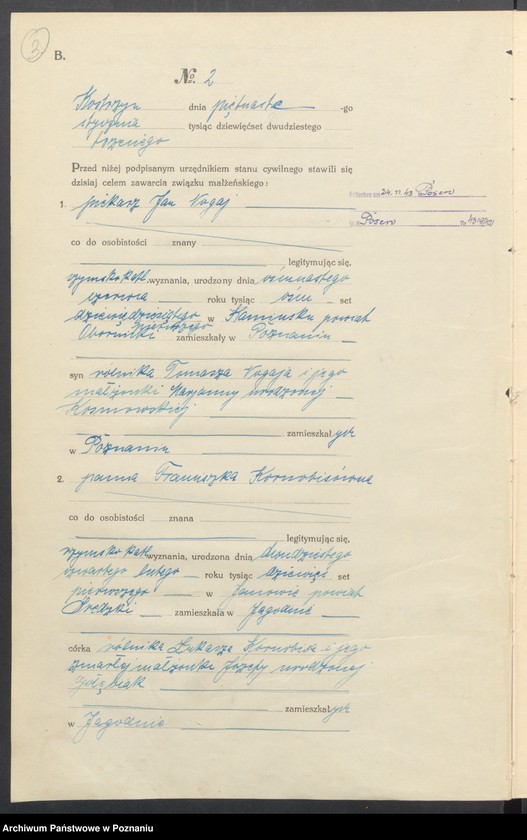 2
B.
No. 2
Kostrzyn dnia piętnaste -go
stycznia tysiąc dziewięćset dwudziestego
trzeciego
Przed niżej podpisanym urzędnikiem stanu cywilnego stawili się
dzisiaj celem zawarcia związku małżeńskiego:
24. 11. 43 Posen
Posen
1. piekarz Jan Nogaj
co do osobistości znany
legitymując się,
rzymsko katl. wyznania, urodzony dnia ósmnastego
czerwca roku tysiąc ośm set
dziewięćdziesiątego w Kamińsku powiat
Obornicki zamieszkały w Poznaniu
syn rólnika Tomasza Nogaja i jego
małżonki Maryanny urodzonej
zamieszkałych
w Poznaniu
2. panna Franciszka Kornobisówna
co do osobistości znana
legitymując się,
rzymsko katl. wyznania, urodzona dnia dwudziestego
czwartego lutego roku tysiąc dziewięć set
pierwszego w Janowie powiat
Średzki zamieszkała w Jagodnie
córka rólnika Łukasza Kornobisa i jego
zmarłej małżonki Józefy urodzonej
zamieszkałych
w Jagodnie
Archiwum Państwowe w Poznaniu